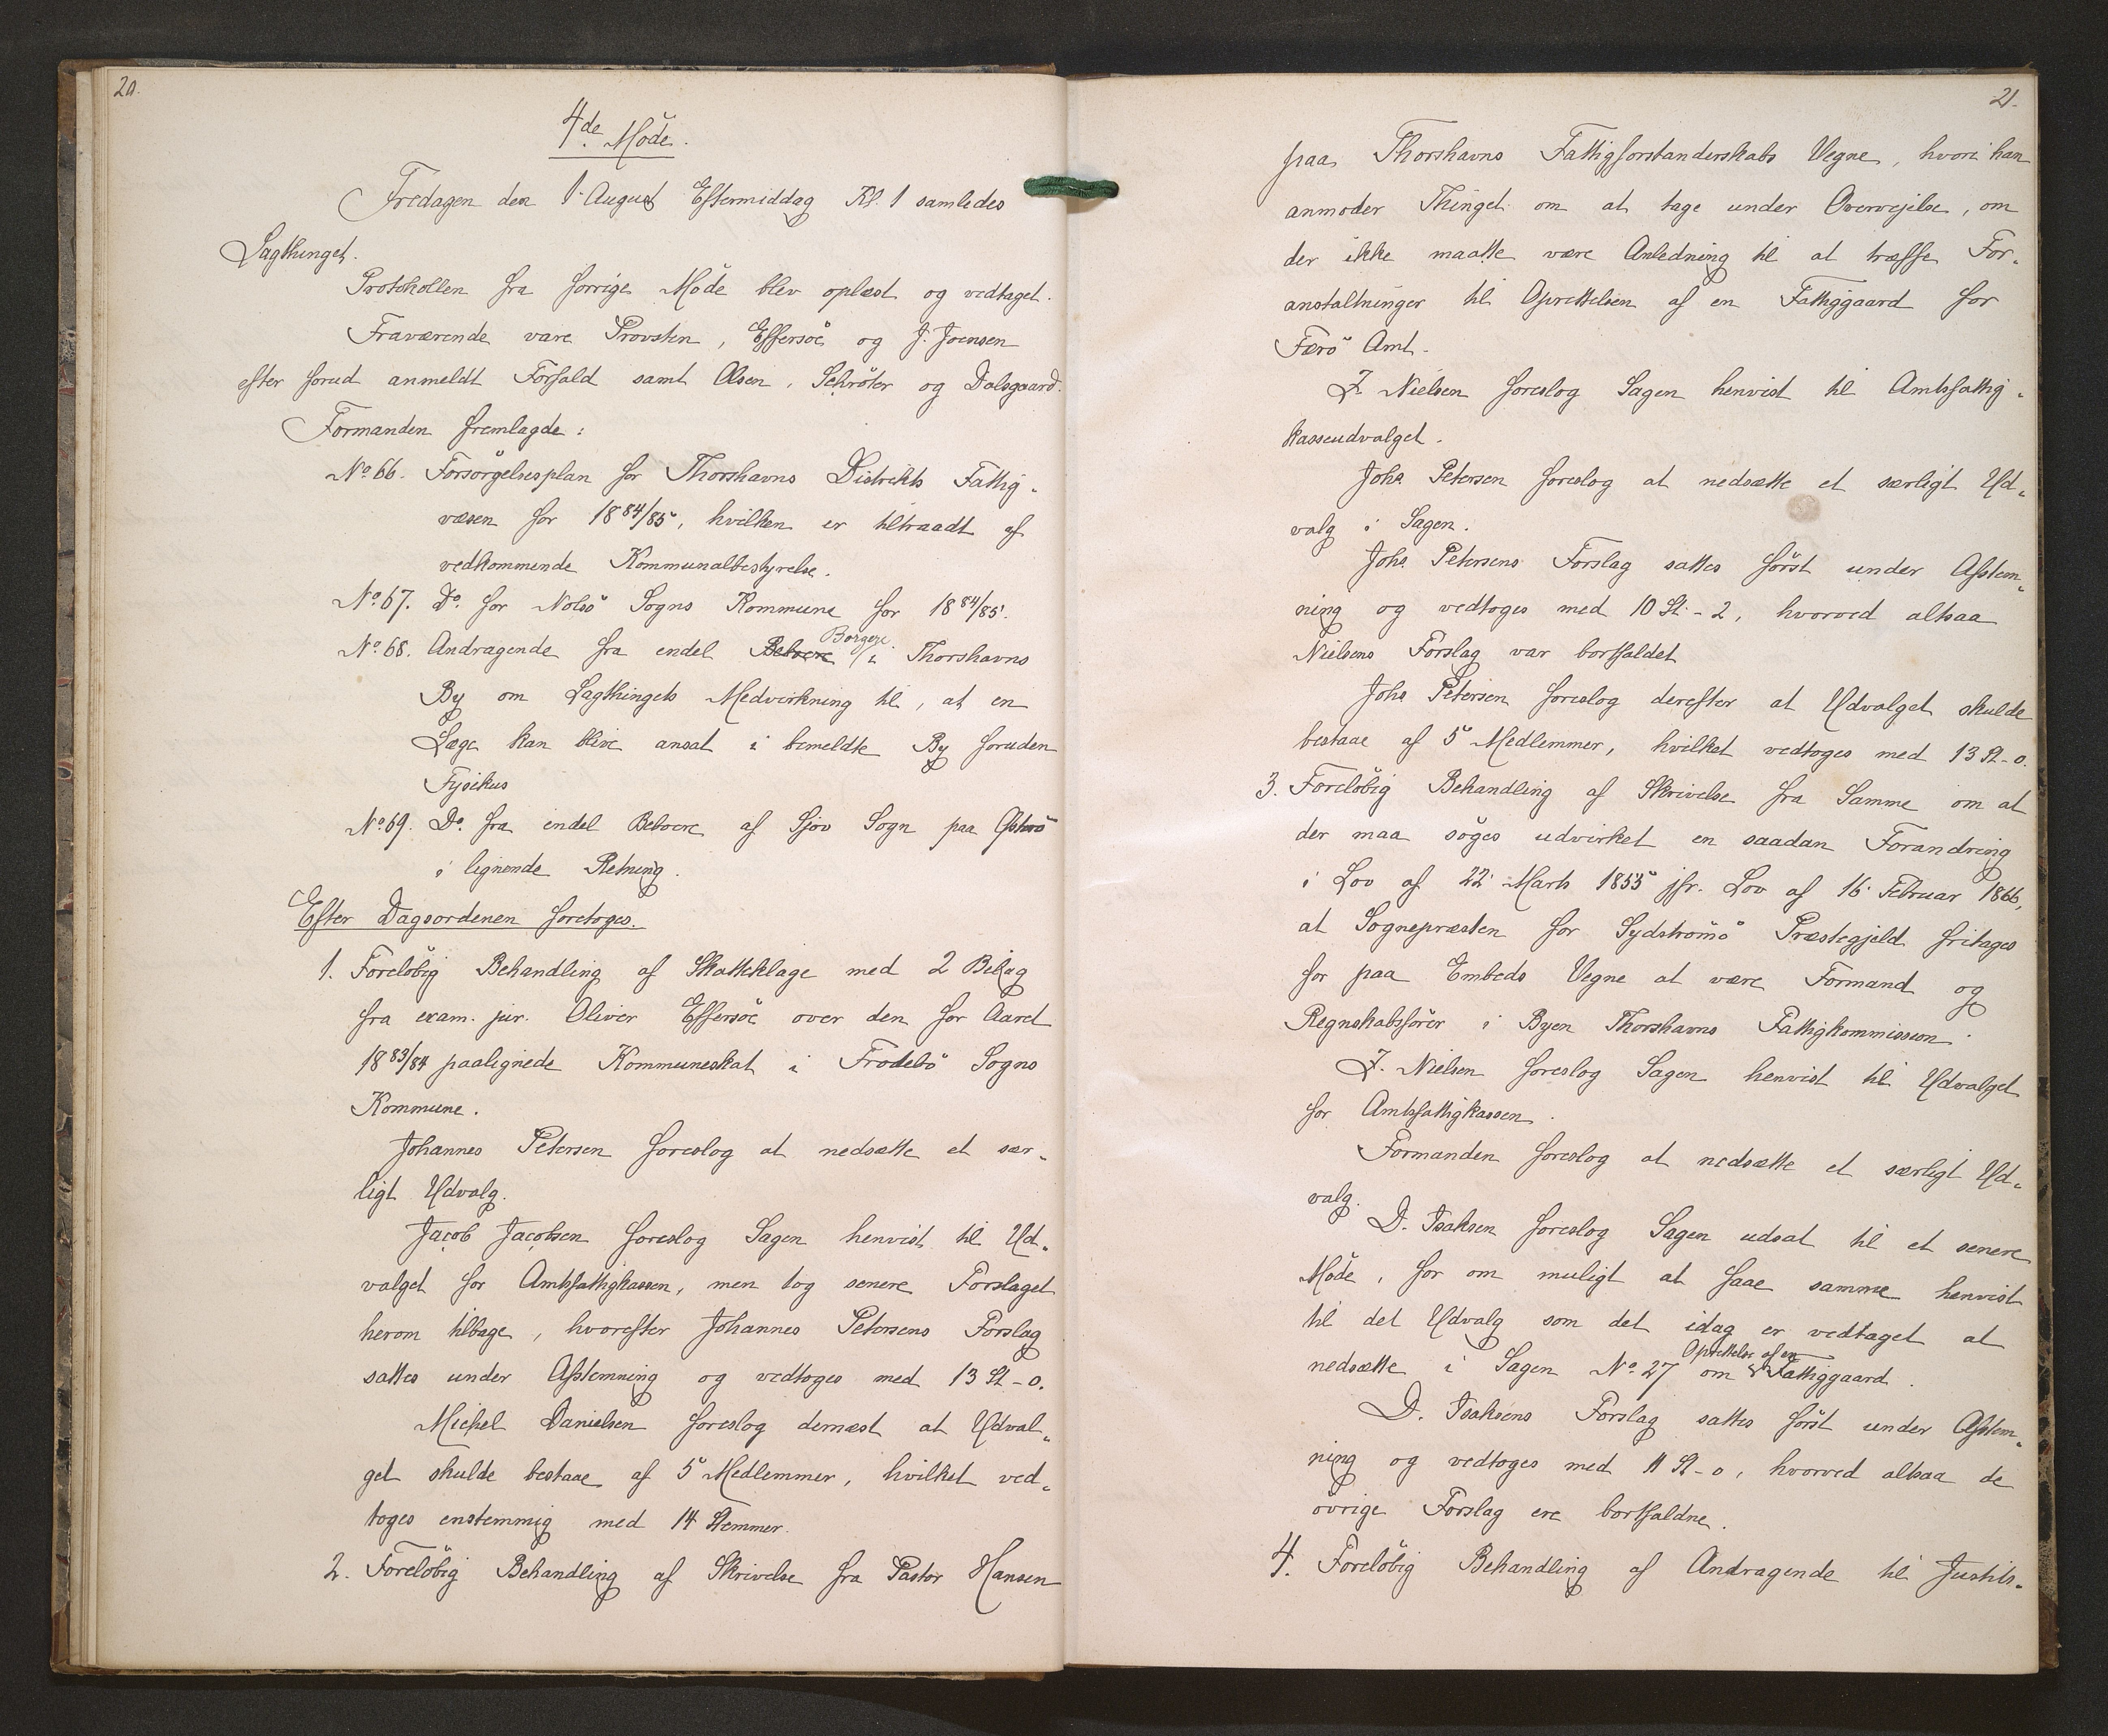 20.
4de Möde.
Fredagen den 1. August Eftermiddag Kl. 1 samledes
Lagthinget.
Protokollen fra forrige Möde blev oplæst og vedtaget.
Fraværende vare Provsten, Effersöe og J. Joensen
efter forud anmeldt Forfald samt Olsen, Schröter og Dalsgaard.
Formanden fremlagde:
No 66. Forsörgelsesplan for Thorshavns Distrikts Fattig-
væsen for 1884/85, hvilken er tiltraadt af
vedkommende Kommunalbestyrelse.
No 67. Do. for Nolsö Sogns Kommune for 1884/85.
No 68. Andragende fra endel Beboere Borgere i Thorshavns
By om Lagthingets Medvirkning til, at en
Læge kan blive ansat i bemeldte By foruden
Fysikus
No 69. Do. fra endel Beboere af Sjov Sogn paa Österö
i lignende Retning.
Efter Dagsordenen foretoges.
1. Foreløbig Behandling af Skatteklage med 2 Bilag
fra exam. jur. Oliver Effersöe over den for Aaret
1883/84 paalignede Kommuneskat i Frodebö Sogns
Kommune.
Johannes Petersen foreslog at nedsætte et sær-
ligt Udvalg.
Jacob Jacobsen foreslog Sagen henvist til Ud-
valget for Amtsfattigkassen, men tog senere Forslaget
herom tilbage, hvorefter Johannes Petersens Forslag
sattes under Afstemning og vedtoges med 13 St - 0.
Michel Danielsen foreslog dernæst at Udval-
get skulde bestaae af 5 Medlemmer, hvilket ved-
toges enstemmig med 14 Stemmer.
2. Foreløbig Behandling af Skrivelse fra Pastor Hansen
21.
paa Thorshavns Fattigforstanderskabs Vegne, hvori han
anmoder Thinget om at tage under Overvejelse, om
der ikke maatte være Anledning til at træffe For-
anstaltninger til Oprettelsen af en Fattiggaard for
Færö Amt.
Z. Nielsen foreslog Sagen henvist til Amtsfattig-
kasseudvalget.
Johs Petersen foreslog at nedsætte et særligt Ud-
valg i Sagen.
Johs Petersens Forslag sattes först under Afstem-
ning og vedtoges med 10 St - 2, hvorved altsaa
Nielsens Forslag var bortfaldet
Johs Petersen foreslog derefter at Udvalget skulde
bestaae af 5 Medlemmer, hvilket vedtoges med 13 St - 0.
3. Foreløbig Behandling af Skrivelse fra Samme om at
der maa söges udvirket en saadan Forandring
i Lov af 22. Marts 1855 jfr. Lov af 16. Februar 1866,
at Sognepræsten for Sydströmö Præstegjeld fritages
for paa Embeds Vegne at være Formand og
Regnskabsförer i Byen Thorshavns Fattigkommission.
Z. Nielsen foreslog Sagen henvist til Udvalget
for Amtsfattigkassen.
Formanden foreslog at nedsætte et særligt Ud-
valg.
D. Isaksen foreslog Sagen udsat til et senere
Möde, for om muligt at faae samme henvist
til det Udvalg som det idag er vedtaget at
nedsætte i Sagen No 27 om Oprettelse af en Fattiggaard.
D. Isaksens Forslag sattes först under Afstem-
ning og vedtoges med 11 St - 0, hvorved altsaa de
övrige Forslag ere bortfaldne.
4. Foreløbig Behandling af Andragende til Justits-